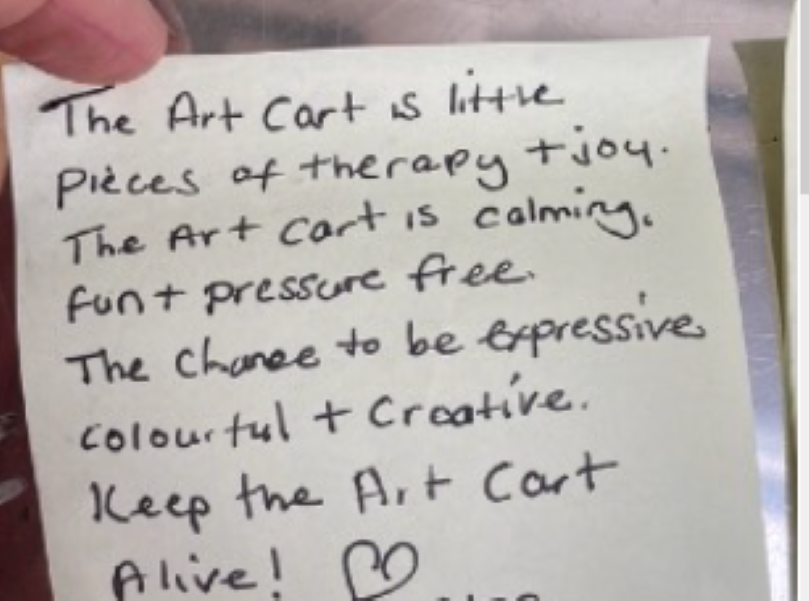 The Art Cart is little
pieces of therapy + joy.
The Art Cart is calming,
fun + pressure free.
The Chance to be expressive,
colourful + Creative.
Keep the Art Cart
Alive! ♡